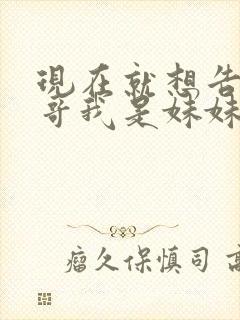 現在就想告
哥我是妹妹
瘤久保慎司 高